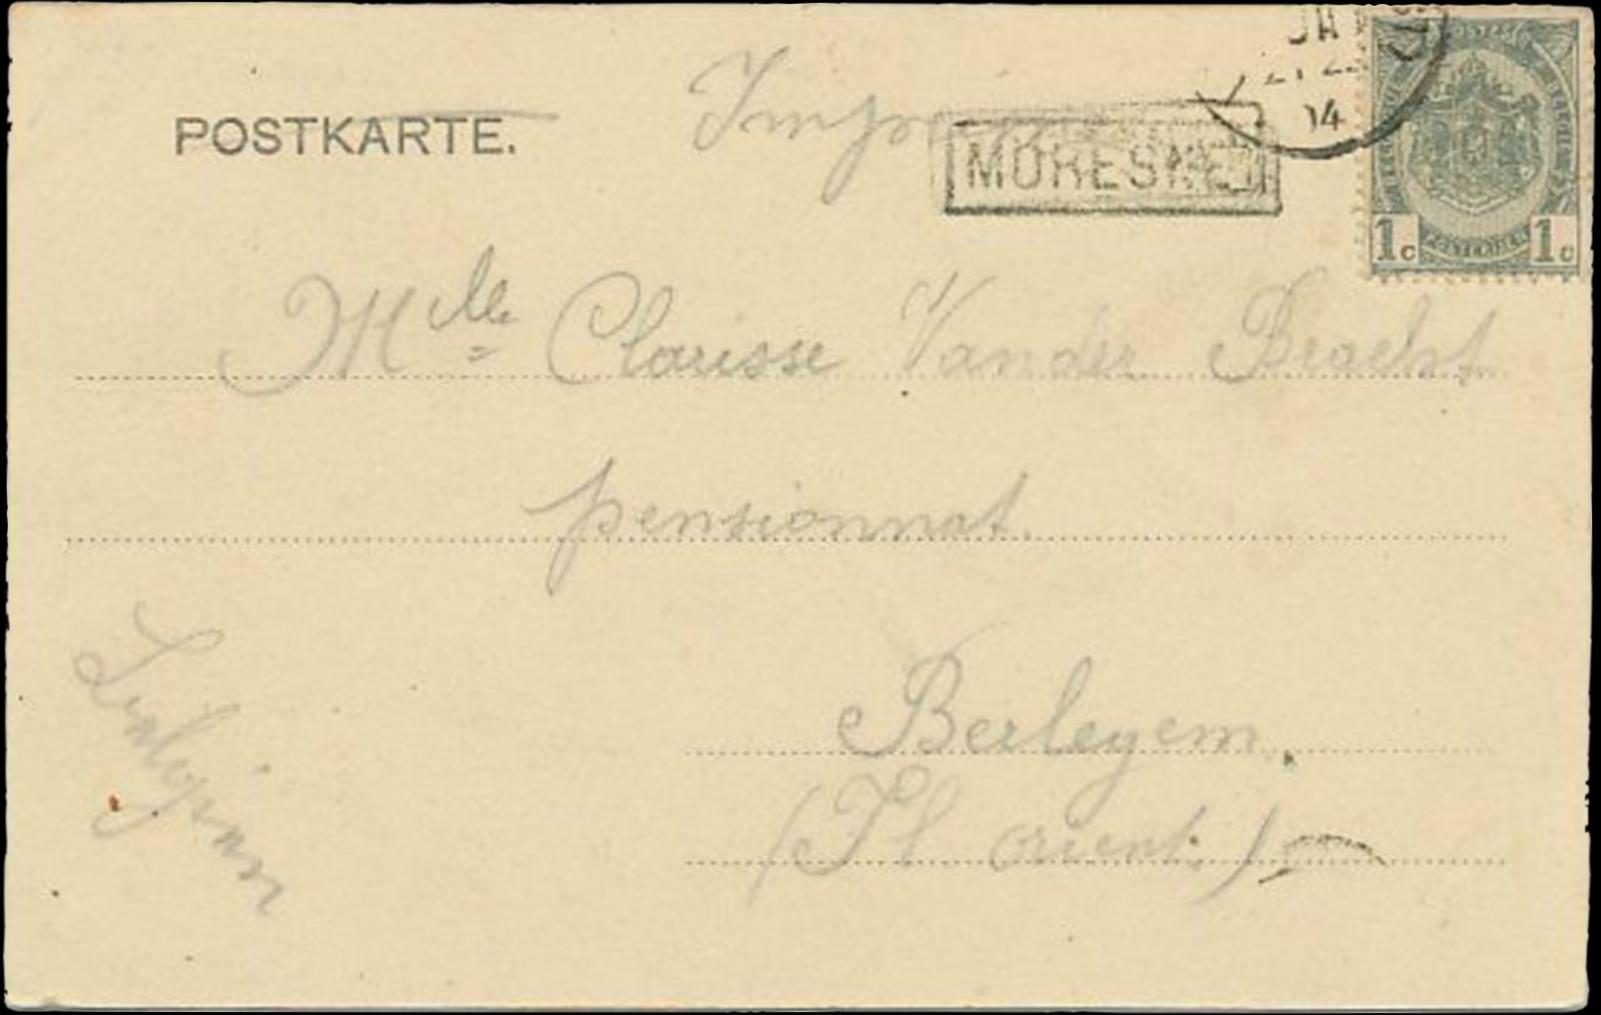 POSTKARTE.
MORESNET
JAN
04
1c 1c
Mlle Clarisse Vander Bracht
pensionnat.
Berlegem.
(Fl orient.)